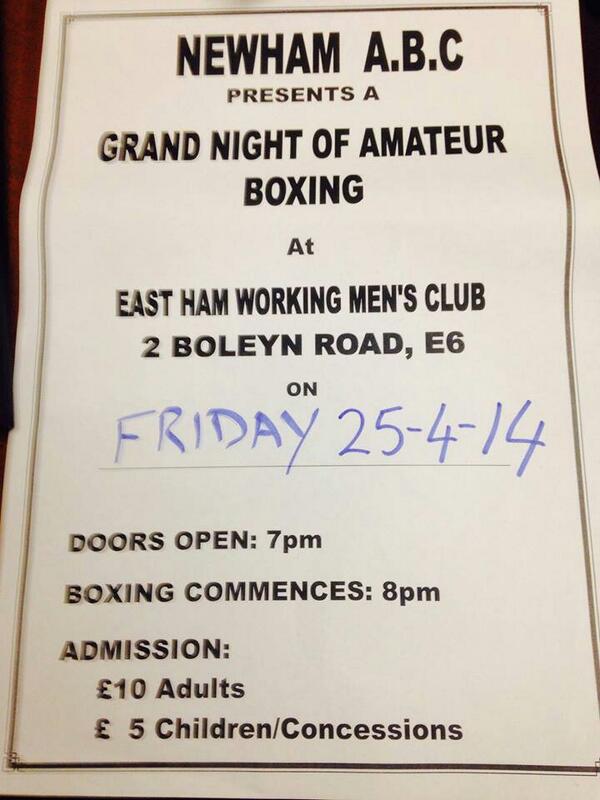 NEWHAM A.B.C
PRESENTS A
GRAND NIGHT OF AMATEUR
BOXING
At
EAST HAM WORKING MEN'S CLUB
2 BOLEYN ROAD, E6
ON
FRIDAY 25-4-14
DOORS OPEN: 7pm
BOXING COMMENCES: 8pm
ADMISSION:
£10 Adults
£ 5 Children/Concessions